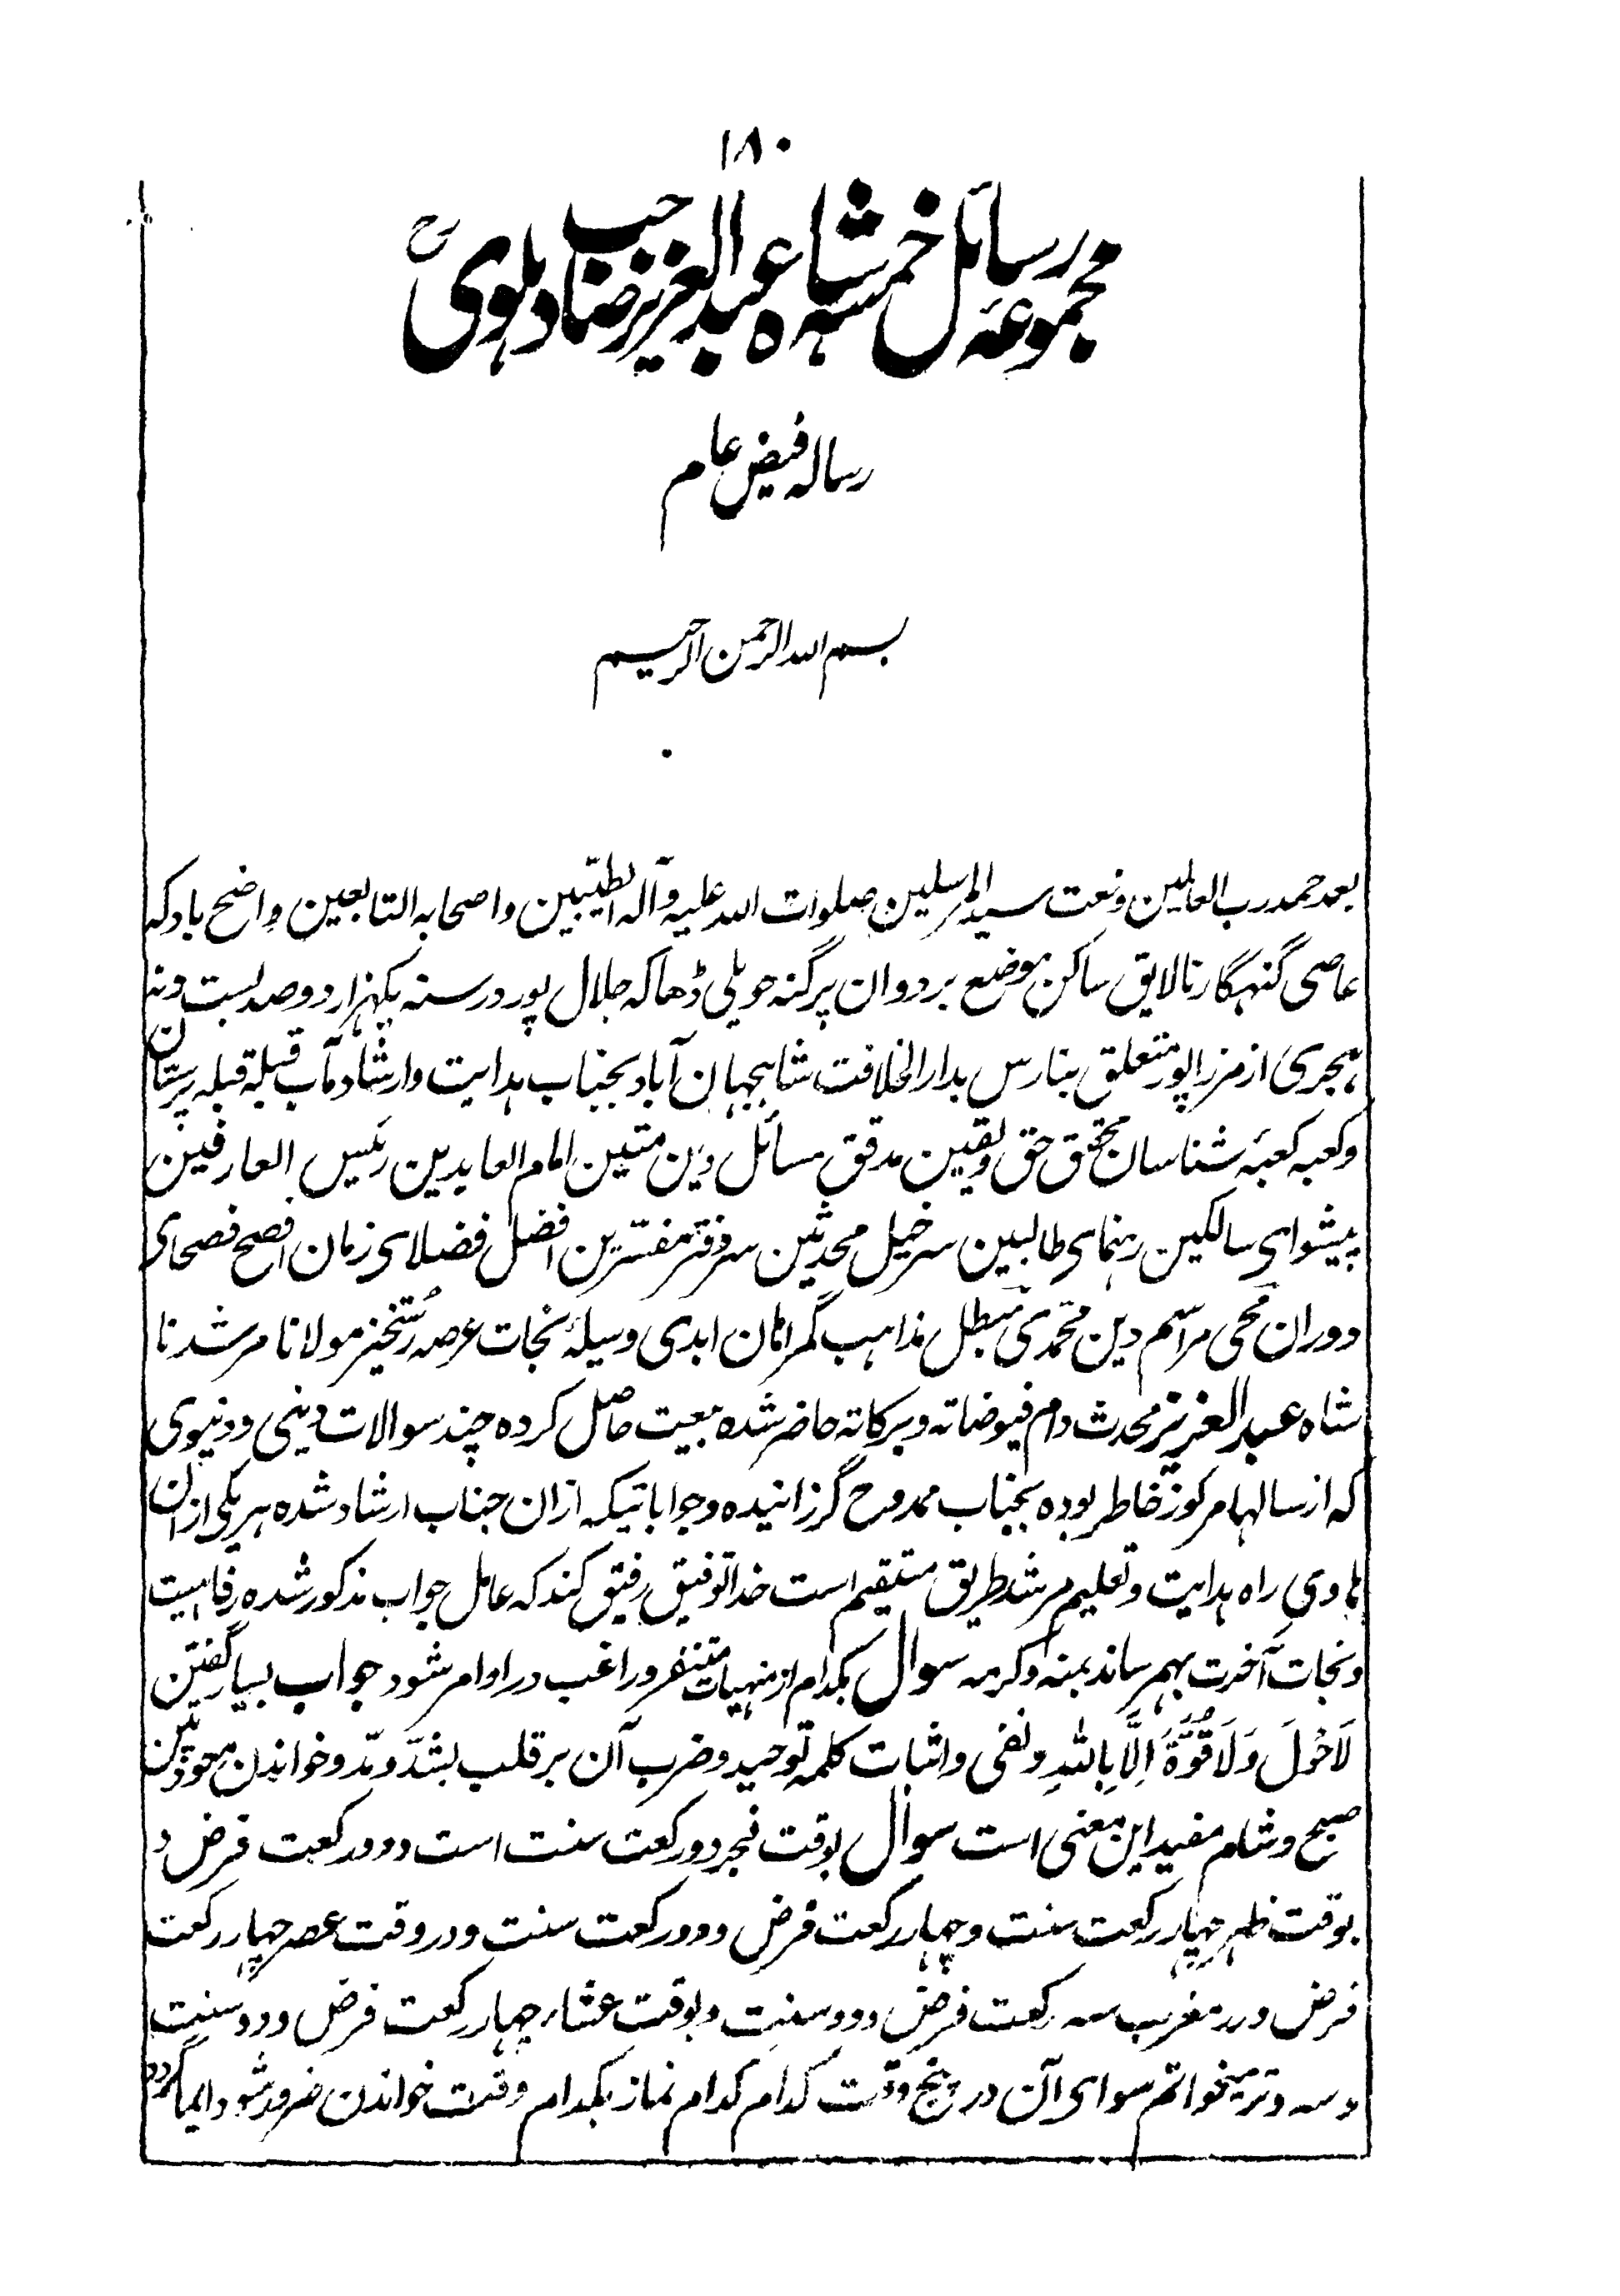 ۱۸۰
مجموعۂ رسائل خمسہ شاہ عبد العزیز صاحب دہلوی رح
رسالہ فیض عام
بسم الله الرحمن الرحیم
بعد حمد رب العالمین و نعت سید المرسلین صلوات الله علیه و آله الطیبین و اصحابه التابعین واضح باد که
عاصی گنہگار نالایق ساکن موضع بردوان پرگنه حویلی ڈھاکه جلال پور در سنه یکہزار دو صد بست و نه
ہجری از مرزاپور متعلق بنارس بدار الخلافت شاہجہان آباد بجناب ہدایت و ارشاد مآب قبلۂ قبله پرستان
و کعبه کعبۂ شناسان محقق حق و یقین مدقق مسائل دین متین امام العابدین رئیس العارفین
پیشوای سالکین رہنمای طالبین سرخیل محدثین سردفتر مفسرین افضل فضلای زمان افصح فصحای
دوران محی مراسم دین محمدی مبطل مذاہب گمراہان ابدی وسیلۂ نجات عرصه رستخیز مولانا مرشدنا
شاہ عبد العزیز محدث دام فیوضاته و برکاته حاضر شده بیعت حاصل کرده چند سوالات دینی و دنیوی
که از سالہا مرکوز خاطر بوده بجناب ممدوح گزرانیده و جواباتیکه ازان جناب ارشاد شده ہر یکی ازان
ہادیِ راه ہدایت و تعلیم مرشد طریق مستقیم است خدا توفیق رفیق کند که عامل جواب مذکور شده رفاہیت
و نجات آخرت بہم رساند بمنه و کرمه سوال بکدام از منہیات متنفر و راغب در اوامر شود جواب بسیار گفتن
لَا حَوْلَ وَلَا قُوَّةَ اِلَّا بِاللهِ و نفی و اثبات کلمه توحید و ضرب آن بر قلب بشدّ و مدّ و خواندن معوذتین
صبح و شام مفید این معنی است سوال بوقت فجر دو رکعت سنت است و دو رکعت فرض و
بوقت ظہر چہار رکعت سنت و چہار رکعت فرض و دو رکعت سنت و در وقت عصر چہار رکعت
فرض و در مغرب سه رکعت فرض و دو سنت و بوقت عشاء چہار رکعت فرض و دو سنت
و سه وتر میخوانم سوای آن در پنج وقت کدام کدام نماز بکدام وقت خواندن ضرور شود ایما گردد